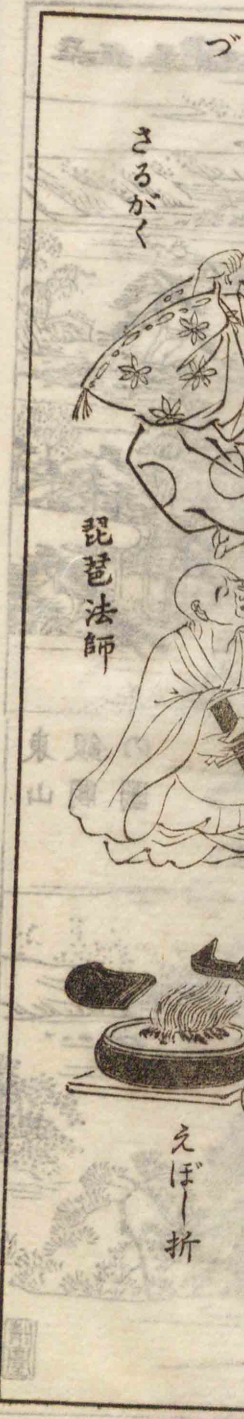 づ
さるがく
琵琶法師
えぼし折